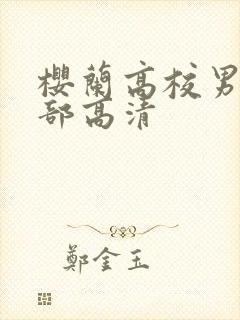 櫻蘭高校男
部高清
鄭金玉